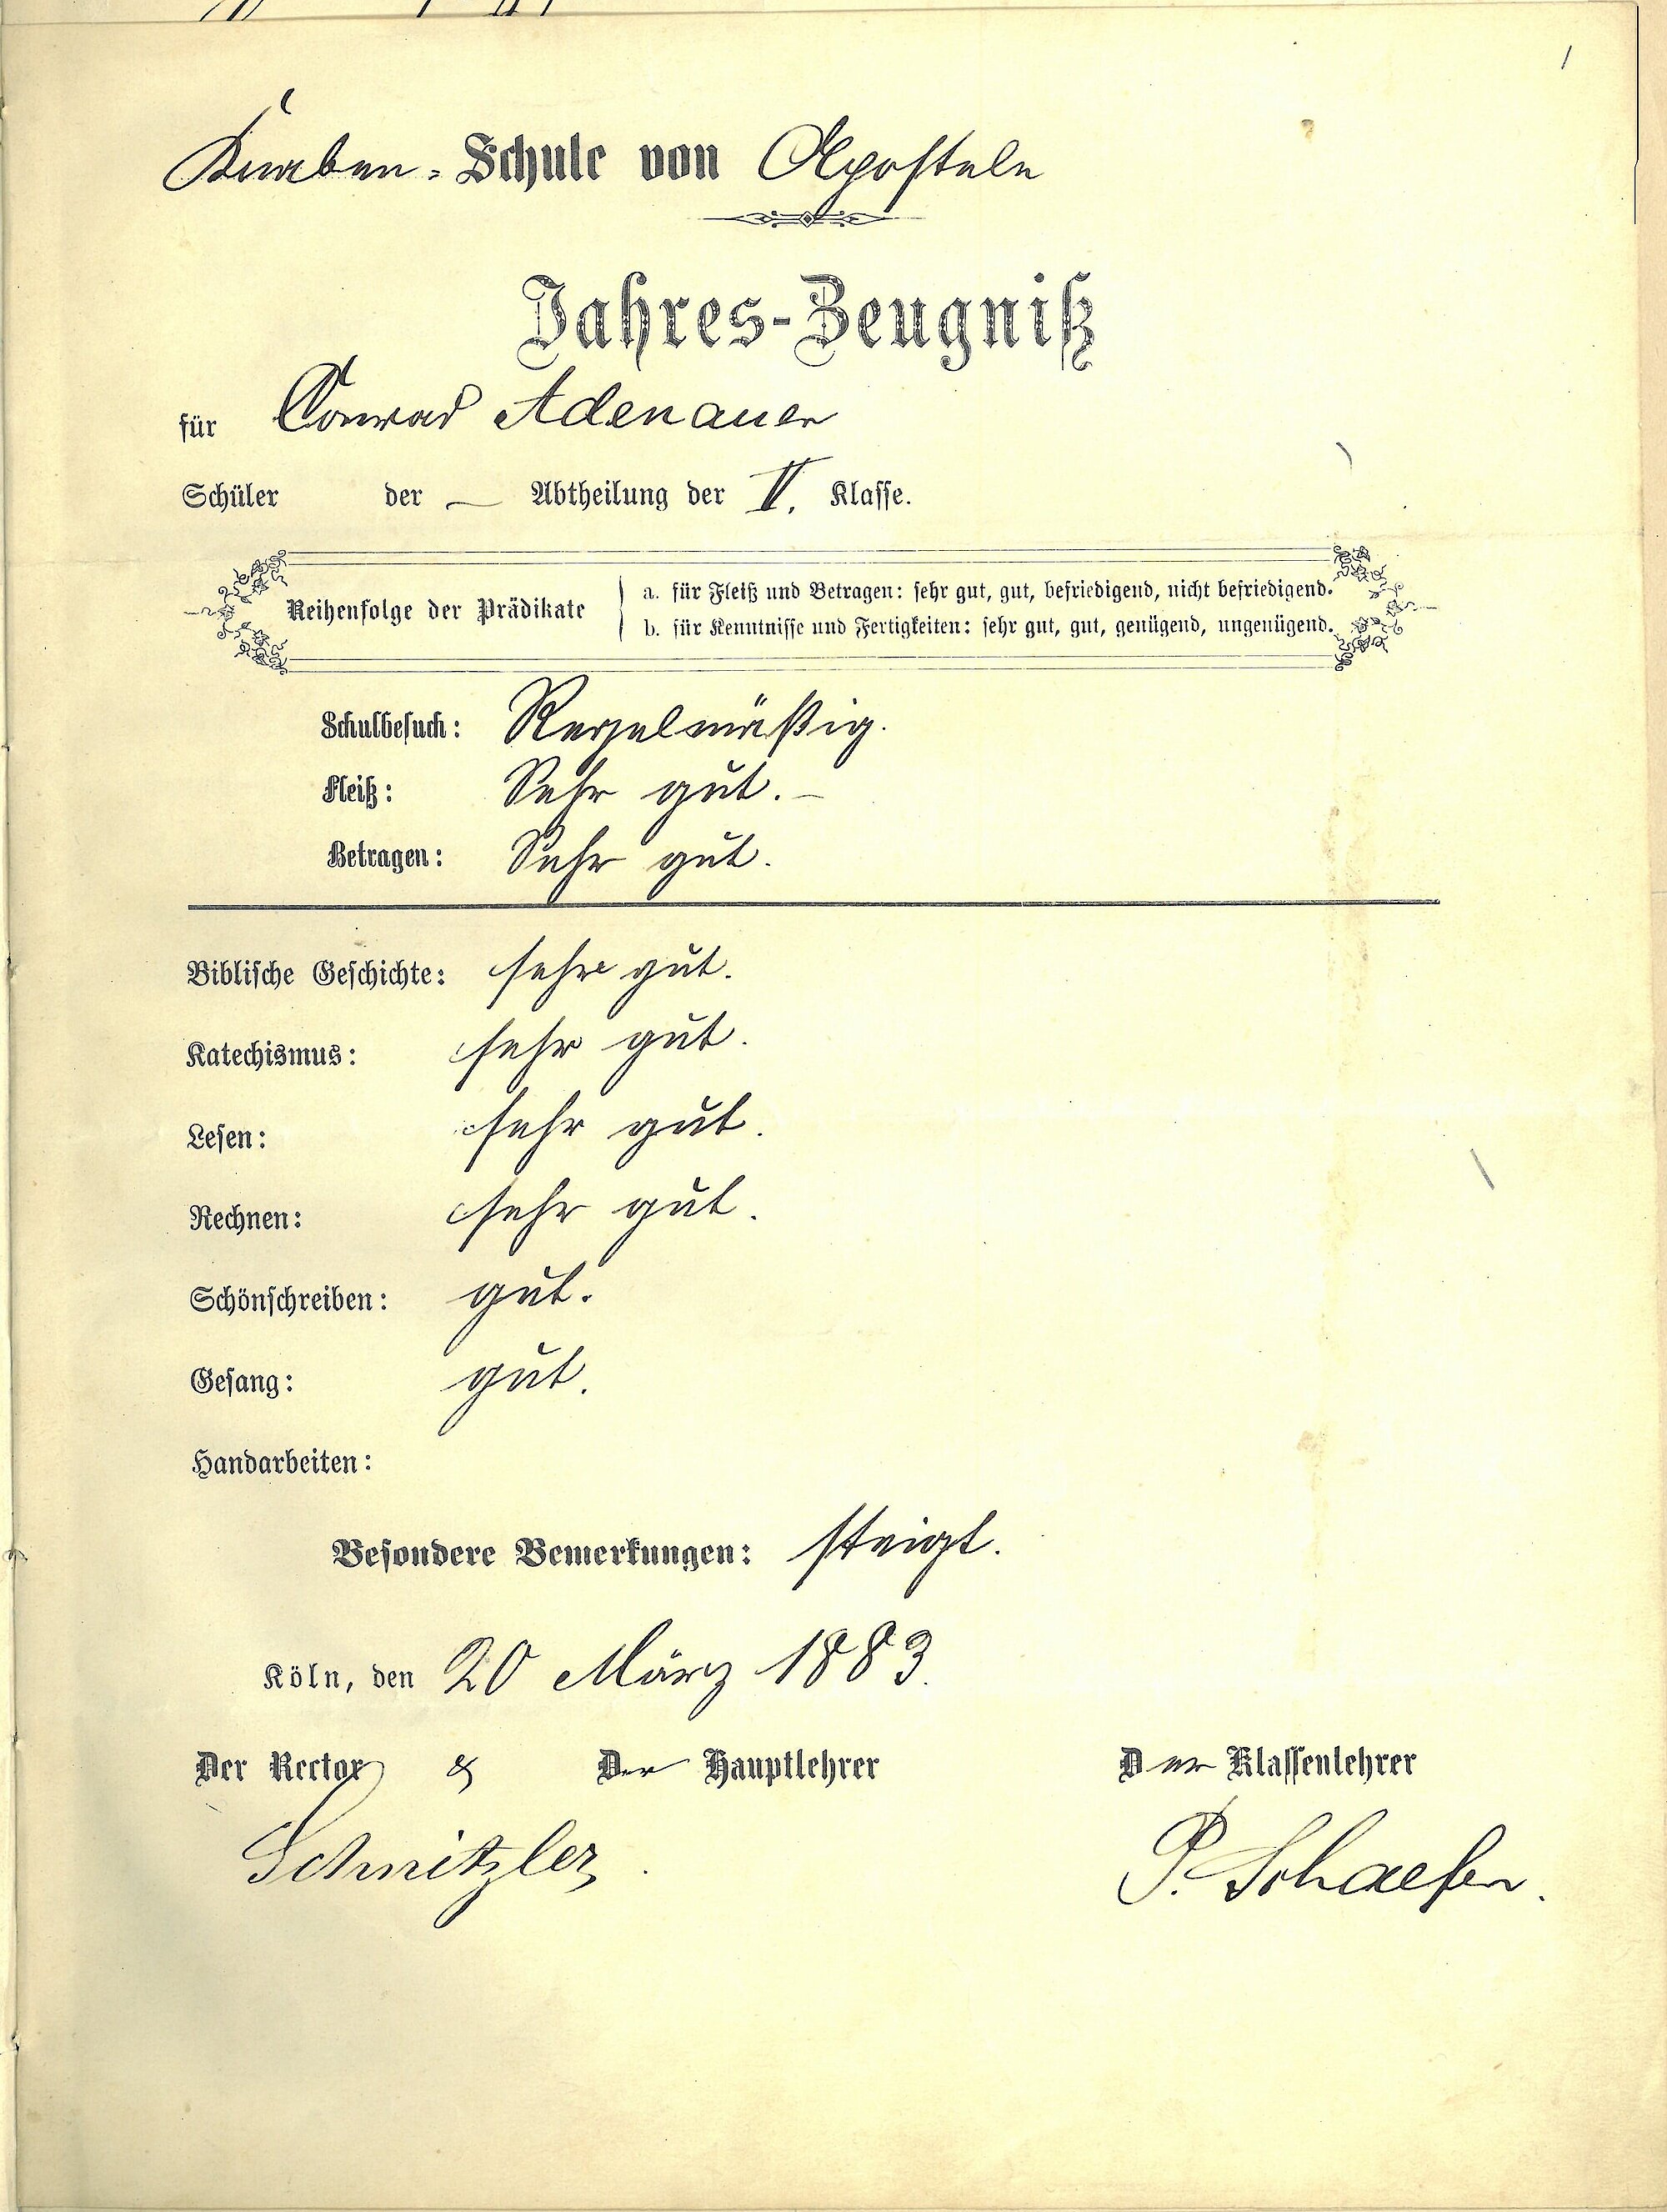 Knaben-Schule von Aposteln
Jahres-Zeugniß
für Conrad Adenauer
Schüler der — Abtheilung der V. Klasse.
Reihenfolge der Prädikate
a. für Fleiß und Betragen: sehr gut, gut, befriedigend, nicht befriedigend.
b. für Kenntnisse und Fertigkeiten: sehr gut, gut, genügend, ungenügend.
Schulbesuch: Regelmäßig.
Fleiß: Sehr gut. —
Betragen: Sehr gut.
Biblische Geschichte: sehr gut.
Katechismus: sehr gut.
Lesen: sehr gut.
Rechnen: sehr gut.
Schönschreiben: gut.
Gesang: gut.
Handarbeiten:
Besondere Bemerkungen: steigt.
Köln, den 20 März 1883.
Der Rector & Der Hauptlehrer Der Klassenlehrer
Schnitzler. P. Schaefer.